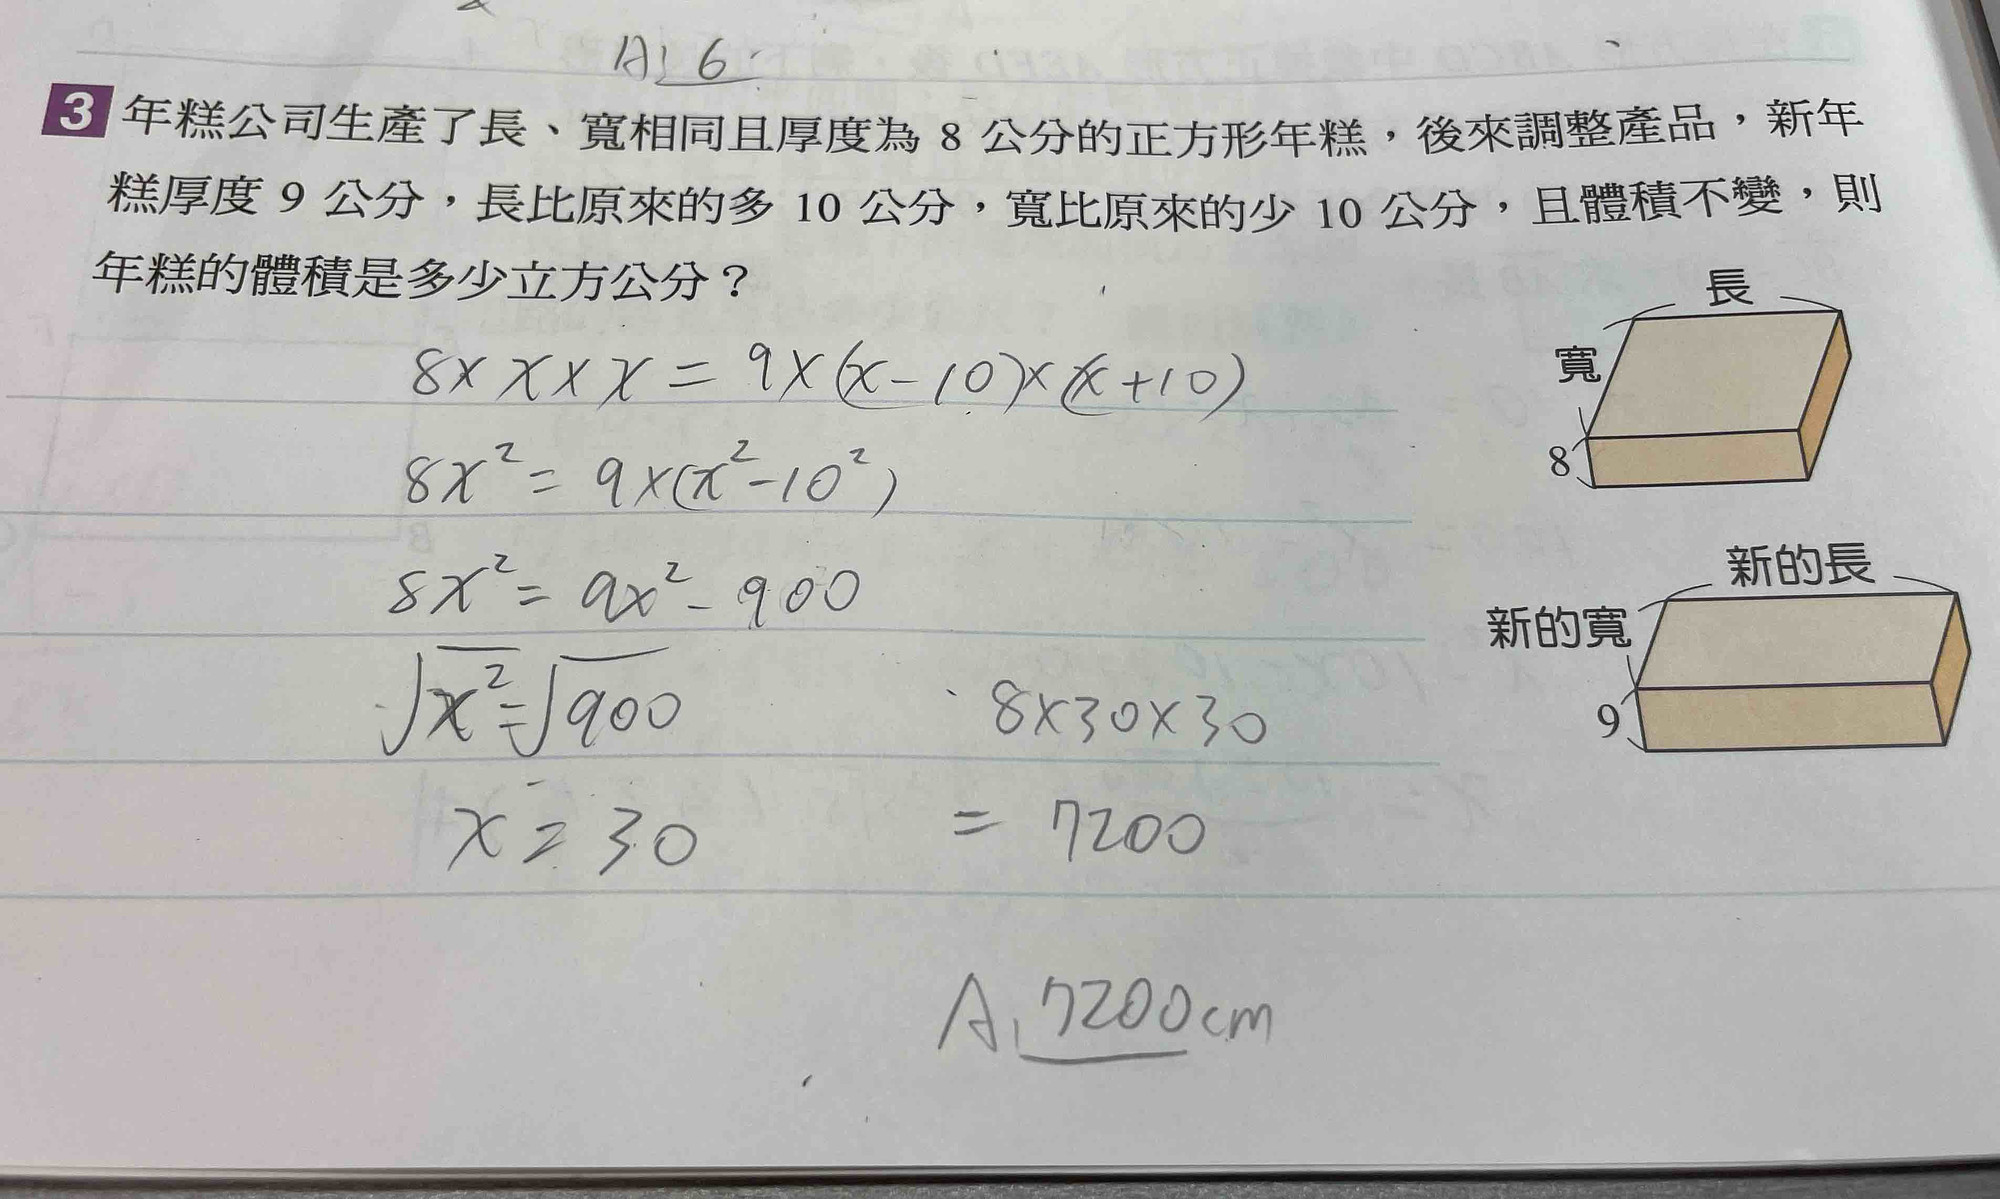 A: 6
3 年糕公司生產了長、寬相同且厚度為 8 公分的正方形年糕，後來調整產品，新年
糕厚度 9 公分，長比原來的多 10 公分，寬比原來的少 10 公分，且體積不變，則
年糕的體積是多少立方公分？
長
寬
8
8×x×x=9×(x-10)×(x+10)
8x²=9×(x²-10²)
8x²=9x²-900
新的長
新的寬
9
√x²=√900
8×30×30
x=30
=7200
A, 7200cm